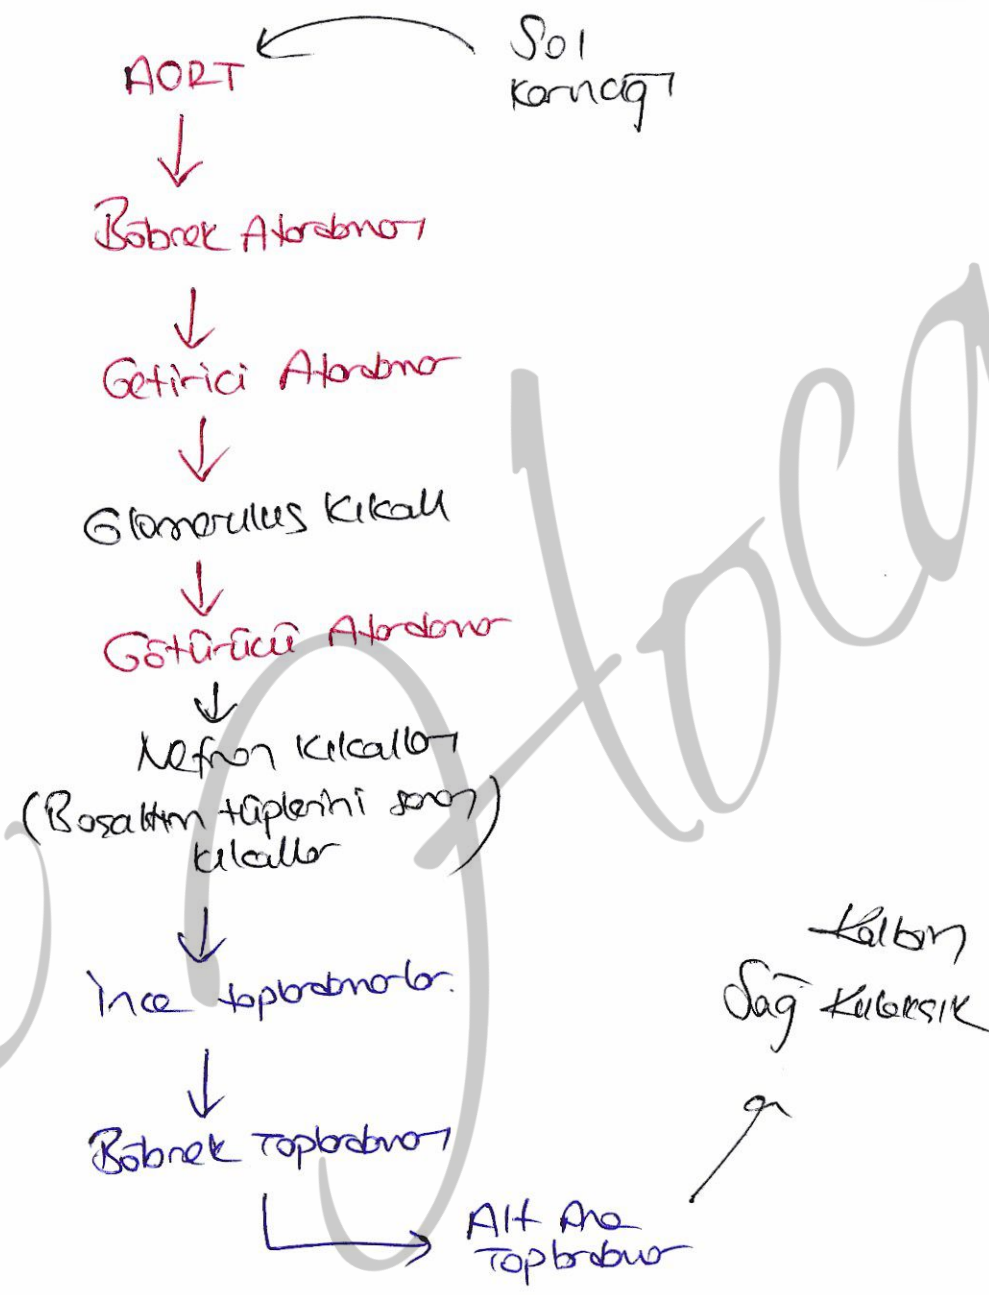 Sol
Karıncığı
AORT
Böbrek Atardamarı
Getirici Atardamar
Glomerulus Kılcalı
Götürücü Atardamar
Nefron Kılcalları
(Boşaltım tüplerini saran
kılcallar
)
İnce toplardamarlar.
Böbrek Toplardamarı
Alt Ana
Toplardamar
Kalbin
Sağ Kulakçık